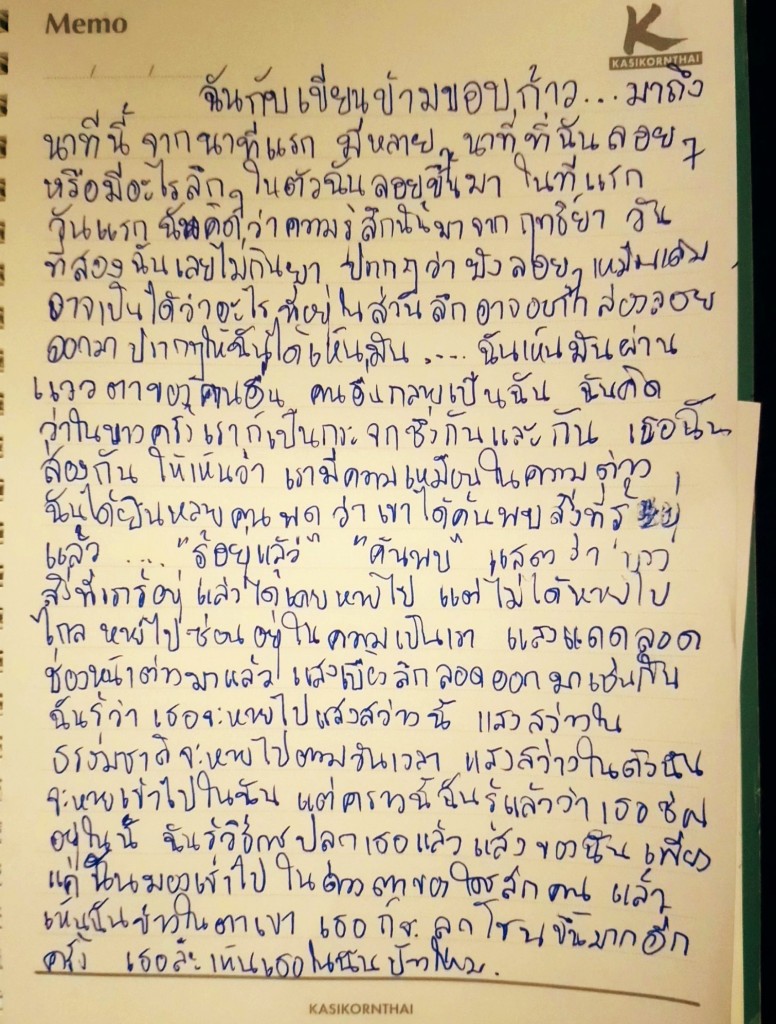 Memo
KASIKORNTHAI
ฉันกับเขียนข้ามขอบก้าว...มาถึง
นาทีนี้ จากนาทีแรก มีหลายๆ นาที ที่ฉันลอยๆ
หรือมีอะไรลึกๆ ในตัวฉันลอยขึ้นมา ในทีแรก
วันแรก ฉันคิดว่าความรู้สึกนั้นมาจากฤทธิ์ยา วัน
ที่สองฉันเลยไม่กินยา ปรากฏว่ายังลอยๆ เหมือนเดิม
อาจเป็นได้ว่าอะไร ที่อยู่ในส่วนลึกอาจอยาก ล่องลอย
ออกมา ปรากฏให้ฉันได้เห็นมัน .... ฉันเห็นมันผ่าน
แววตาของคนอื่น คนอื่นกลายเป็นฉัน ฉันคิด
ว่าในบางครั้งเราก็เป็นกระจกซึ่งกันและกัน เธอฉัน
ส่องกัน ให้เห็นว่า เรามีความเหมือนในความต่าง
ฉันได้ยินหลายคนพูดว่าเขาได้ค้นพบสิ่งที่รู้อยู่
แล้ว .... "รู้อยู่แล้ว" "ค้นพบ" แสดงว่า
สิ่งที่เรารู้อยู่แล้วได้เคยหายไป แต่ไม่ได้หายไป
ไกล หายไปซ่อนอยู่ในความเป็นเรา แสงแดดลอด
ช่องหน้าต่างมาแล้ว แสงเบื้องลึกลอดออกมาเช่นกัน
ฉันรู้ว่า เธอจะหายไปแสงสว่างนี้ แสงสว่างใน
ธรรมชาติจะหายไปตามวันเวลา แสงสว่างในตัวฉัน
จะหายเข้าไปในฉัน แต่คราวนี้ฉันรู้แล้วว่าเธอซ่อน
อยู่ในนี้ ฉันรู้วิธีการปลุกเธอแล้วแสงของฉัน เพียง
แค่ฉันมองเข้าไปในดวงตาของใครสักคน แล้ว
เห็นฉันข้างในตาเขา เธอก็จะลุกโชนขึ้นมาอีก
ครั้ง เธอล่ะเห็นเธอในฉันบ้างไหม.
KASIKORNTHAI